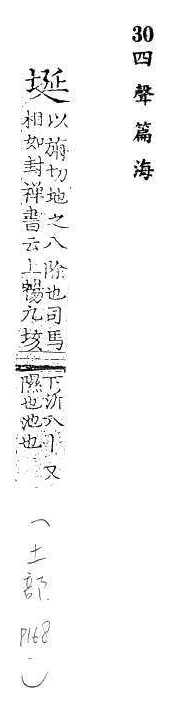 30四聲篇海
埏
以旃切地之八際也司馬
相如封禪書云上暢九垓
下泝八又
隰也池也
(土部 P168)